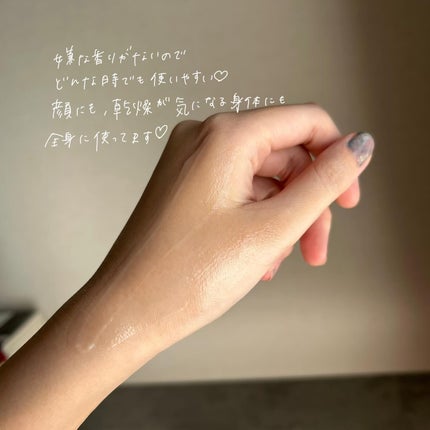 嫌な香りがないので
どんな時でも使いやすい♡
顔にも,乾燥が気になる身体にも
全身に使ってます♡